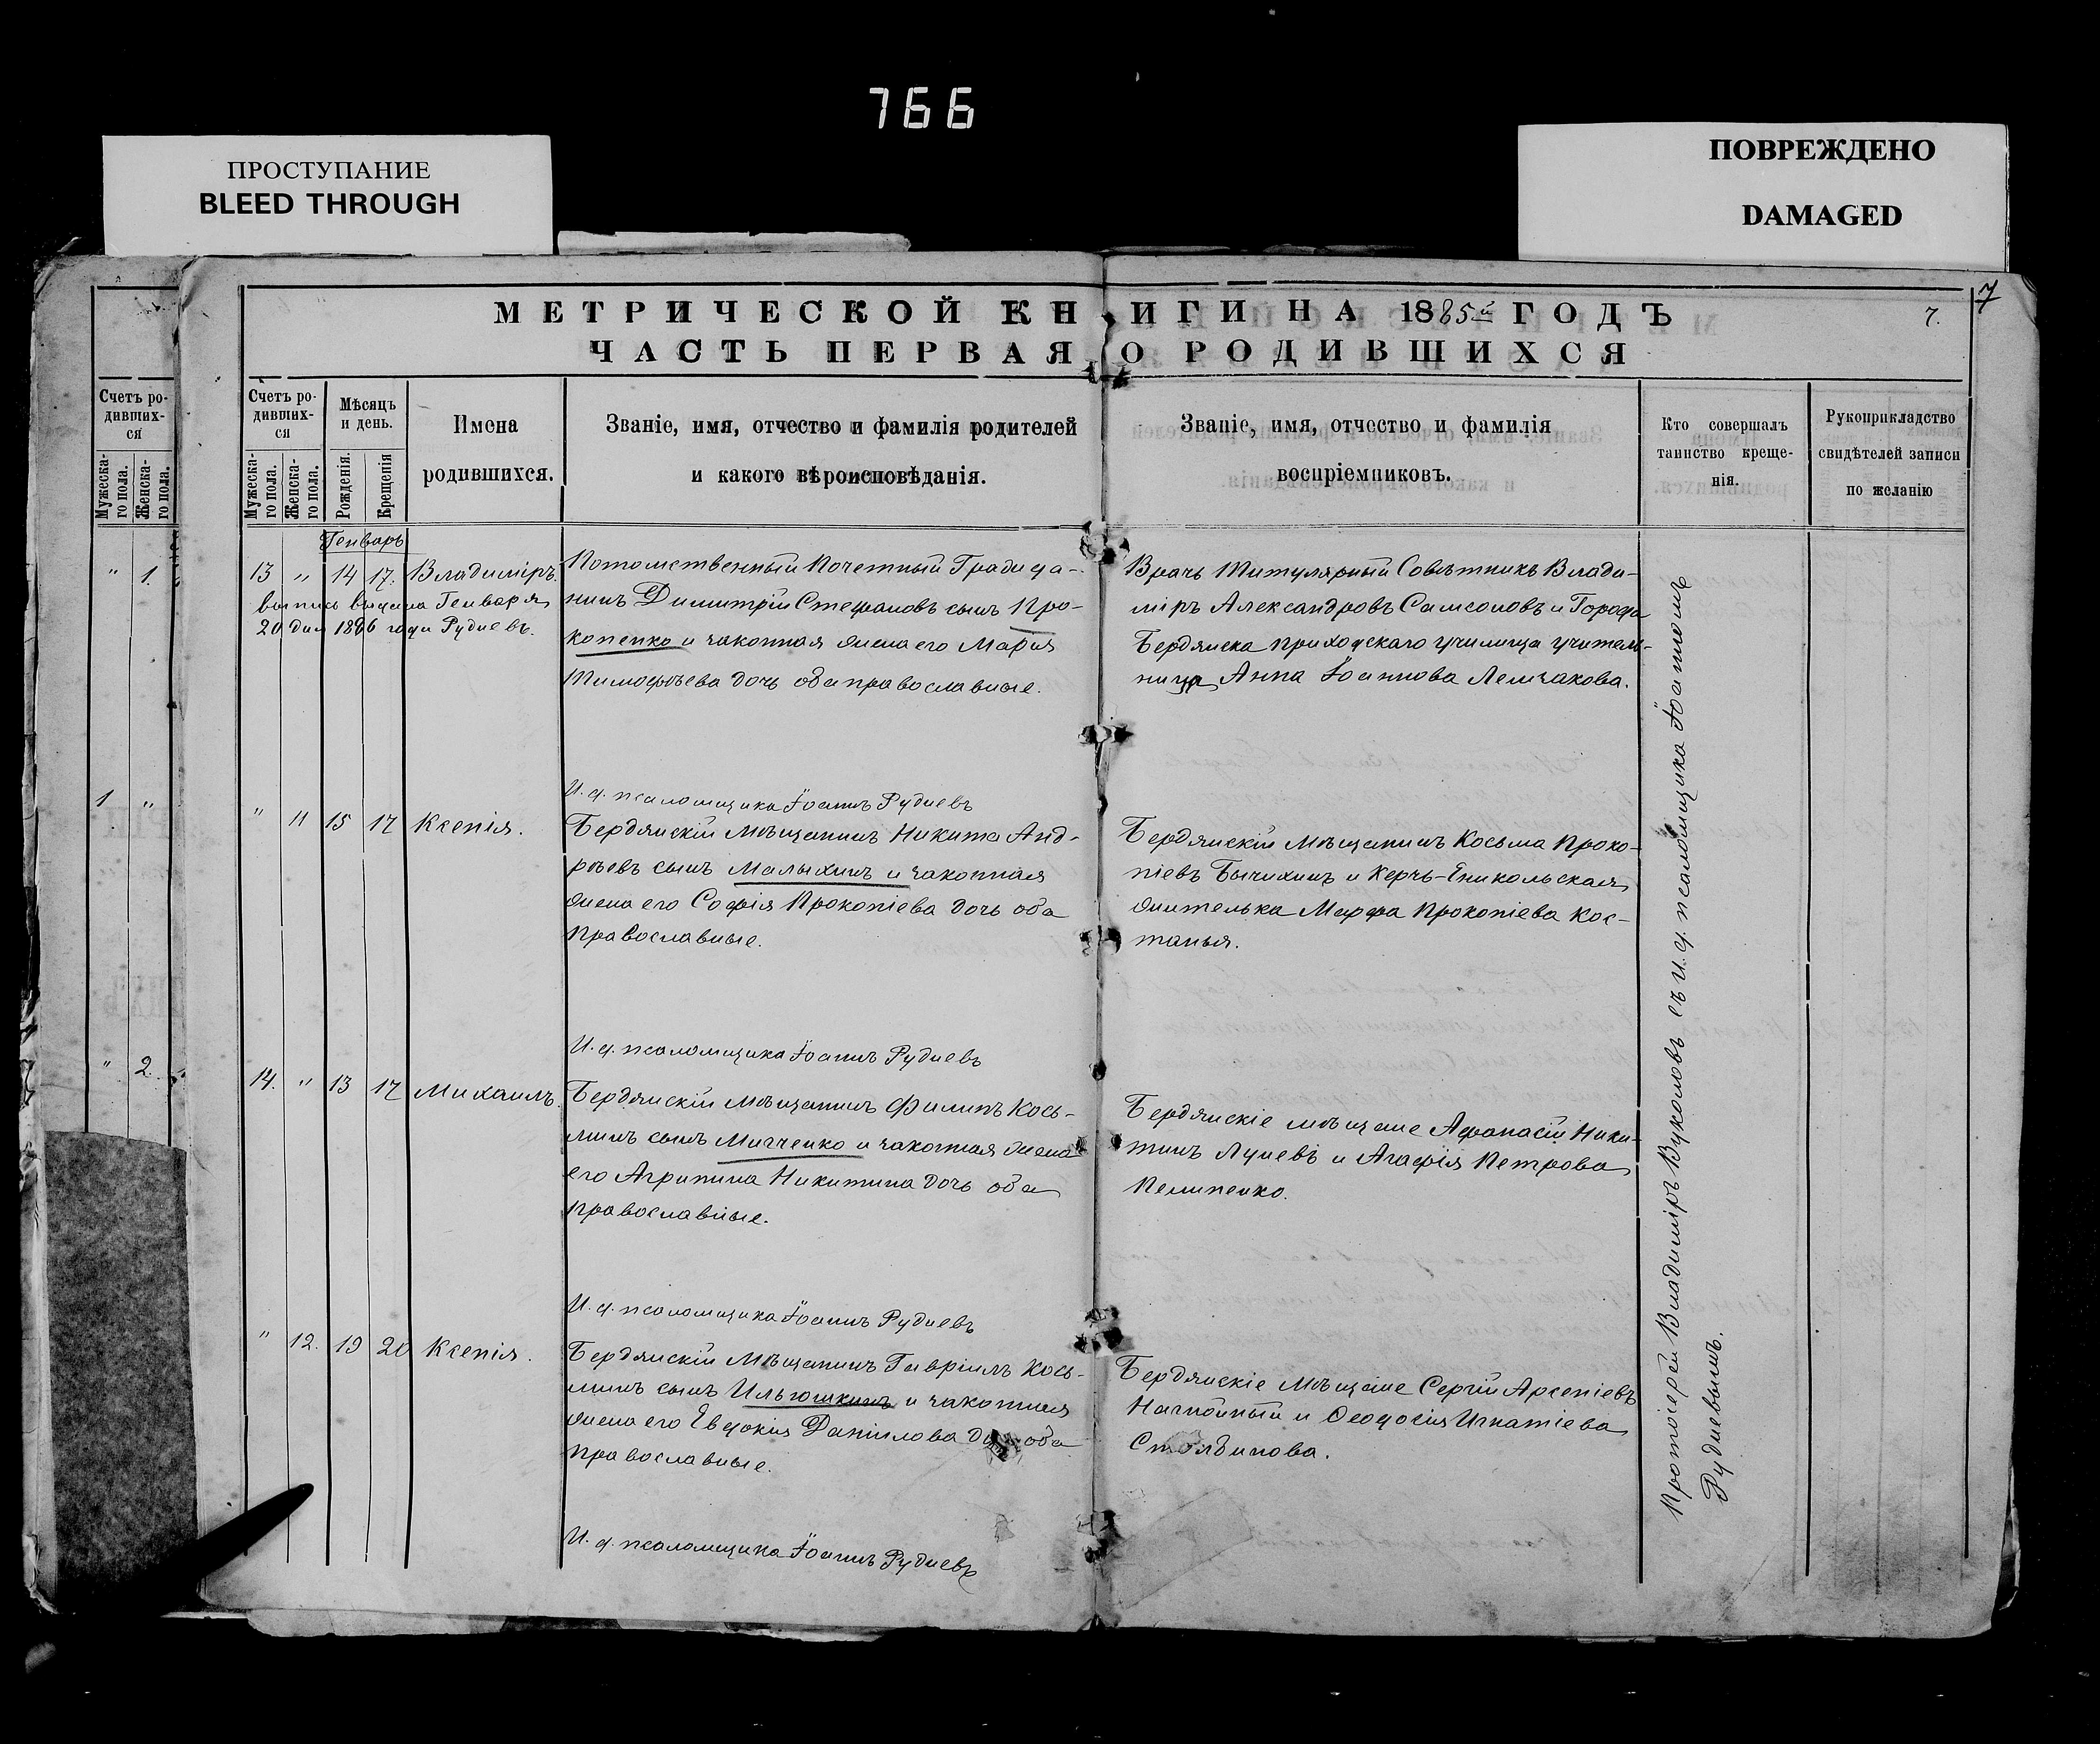 766
ПРОСТУПАНИЕ
BLEED THROUGH
ПОВРЕЖДЕНО
DAMAGED
7
7.
МЕТРИЧЕСКОЙ КНИГИ НА 1885й ГОДЪ
ЧАСТЬ ПЕРВАЯ, О РОДИВШИХСЯ
Счетъ ро-
дивших-
ся
Мужеска-
го пола.
Женска-
го пола.
" 1.
1 "
" 2.
Счетъ ро-
дивших-
ся
Мужеска-
го пола.
Женска-
го пола.
Мѣсяцъ
и день.
Рожденія.
Крещенія
Имена
родившихся.
Званіе, имя, отчество и фамилія родителей
и какого вѣроисповѣданія.
Званіе, имя, отчество и фамилія
воспріемниковъ.
Кто совершалъ
таинство креще-
нія.
Рукоприкладство
свидѣтелей записи
по желанію
Генварь
13 " 14 17. Владиміръ.
выпись выдана Генваря
20 дня 1886 года Рудневъ.
Потомственный Почетный Гражда-
нинъ Димитрій Стефановъ сынъ Про-
копенко и законная жена его Марія
Тимофѣева дочь оба православные.
Врачъ Титулярный Совѣтникъ Влади-
міръ Александровъ Самсоновъ и Города
Бердянска приходскаго училища учитель-
ница Анна Іоаннова Лемзакова.
И. д. псаломщика Іоаннъ Рудневъ
" 11 15 17 Ксенія.
Бердянскій Мѣщанинъ Никита Анд-
рѣевъ сынъ Малыхинъ и законная
жена его Софія Прокопіева дочь оба
православные.
Бердянскій Мѣщанинъ Косьма Проко-
піевъ Бычихинъ и Керчь-Еникольская
жителька Марфа Прокопіева Кос-
танья.
И. д. псаломщика Іоаннъ Рудневъ
14. " 13 17 Михаилъ.
Бердянскій Мѣщанинъ Филипъ Кось-
минъ сынъ Мигченко и законная жена
его Агрипина Никитина дочь оба
православные.
Бердянскіе мѣщане Афанасій Ники-
тинъ Луневъ и Агафія Петрова
Пелипенко.
И. д. псаломщика Іоаннъ Рудневъ
" 12. 19 20 Ксенія.
Бердянскій Мѣщанинъ Гавріилъ Кось-
минъ сынъ Ильюшкинъ и законная
жена его Евдокія Даніилова дочь оба
православные.
Бердянскіе Мѣщане Сергій Арсеніевъ
Нагнойный и Феодосія Игнатіева
Столбинова.
И. д. псаломщика Іоаннъ Рудневъ
Протоіерей Владиміръ Вуколовъ съ и. д. псаломщика Іоанномъ
Рудневымъ.